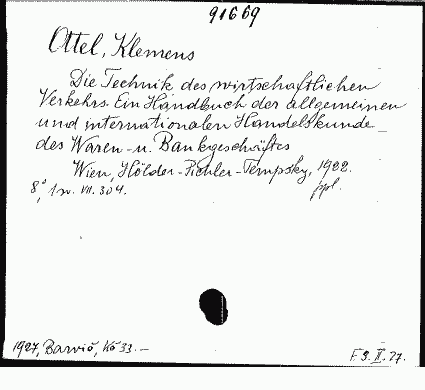 91669
Ottel, Klemens
Die Technik des wirtschaftlichen
Verkehrs. Ein Handbuch der allgemeinen
und internationalen Handelskunde
des Waren- u. Bankgeschäftes
Wien, Hölder-Pichler-Tempsky, 1922.
8°, VII. 304.
1927, Barvič, Kč 33.-
F. 9. II. 27.